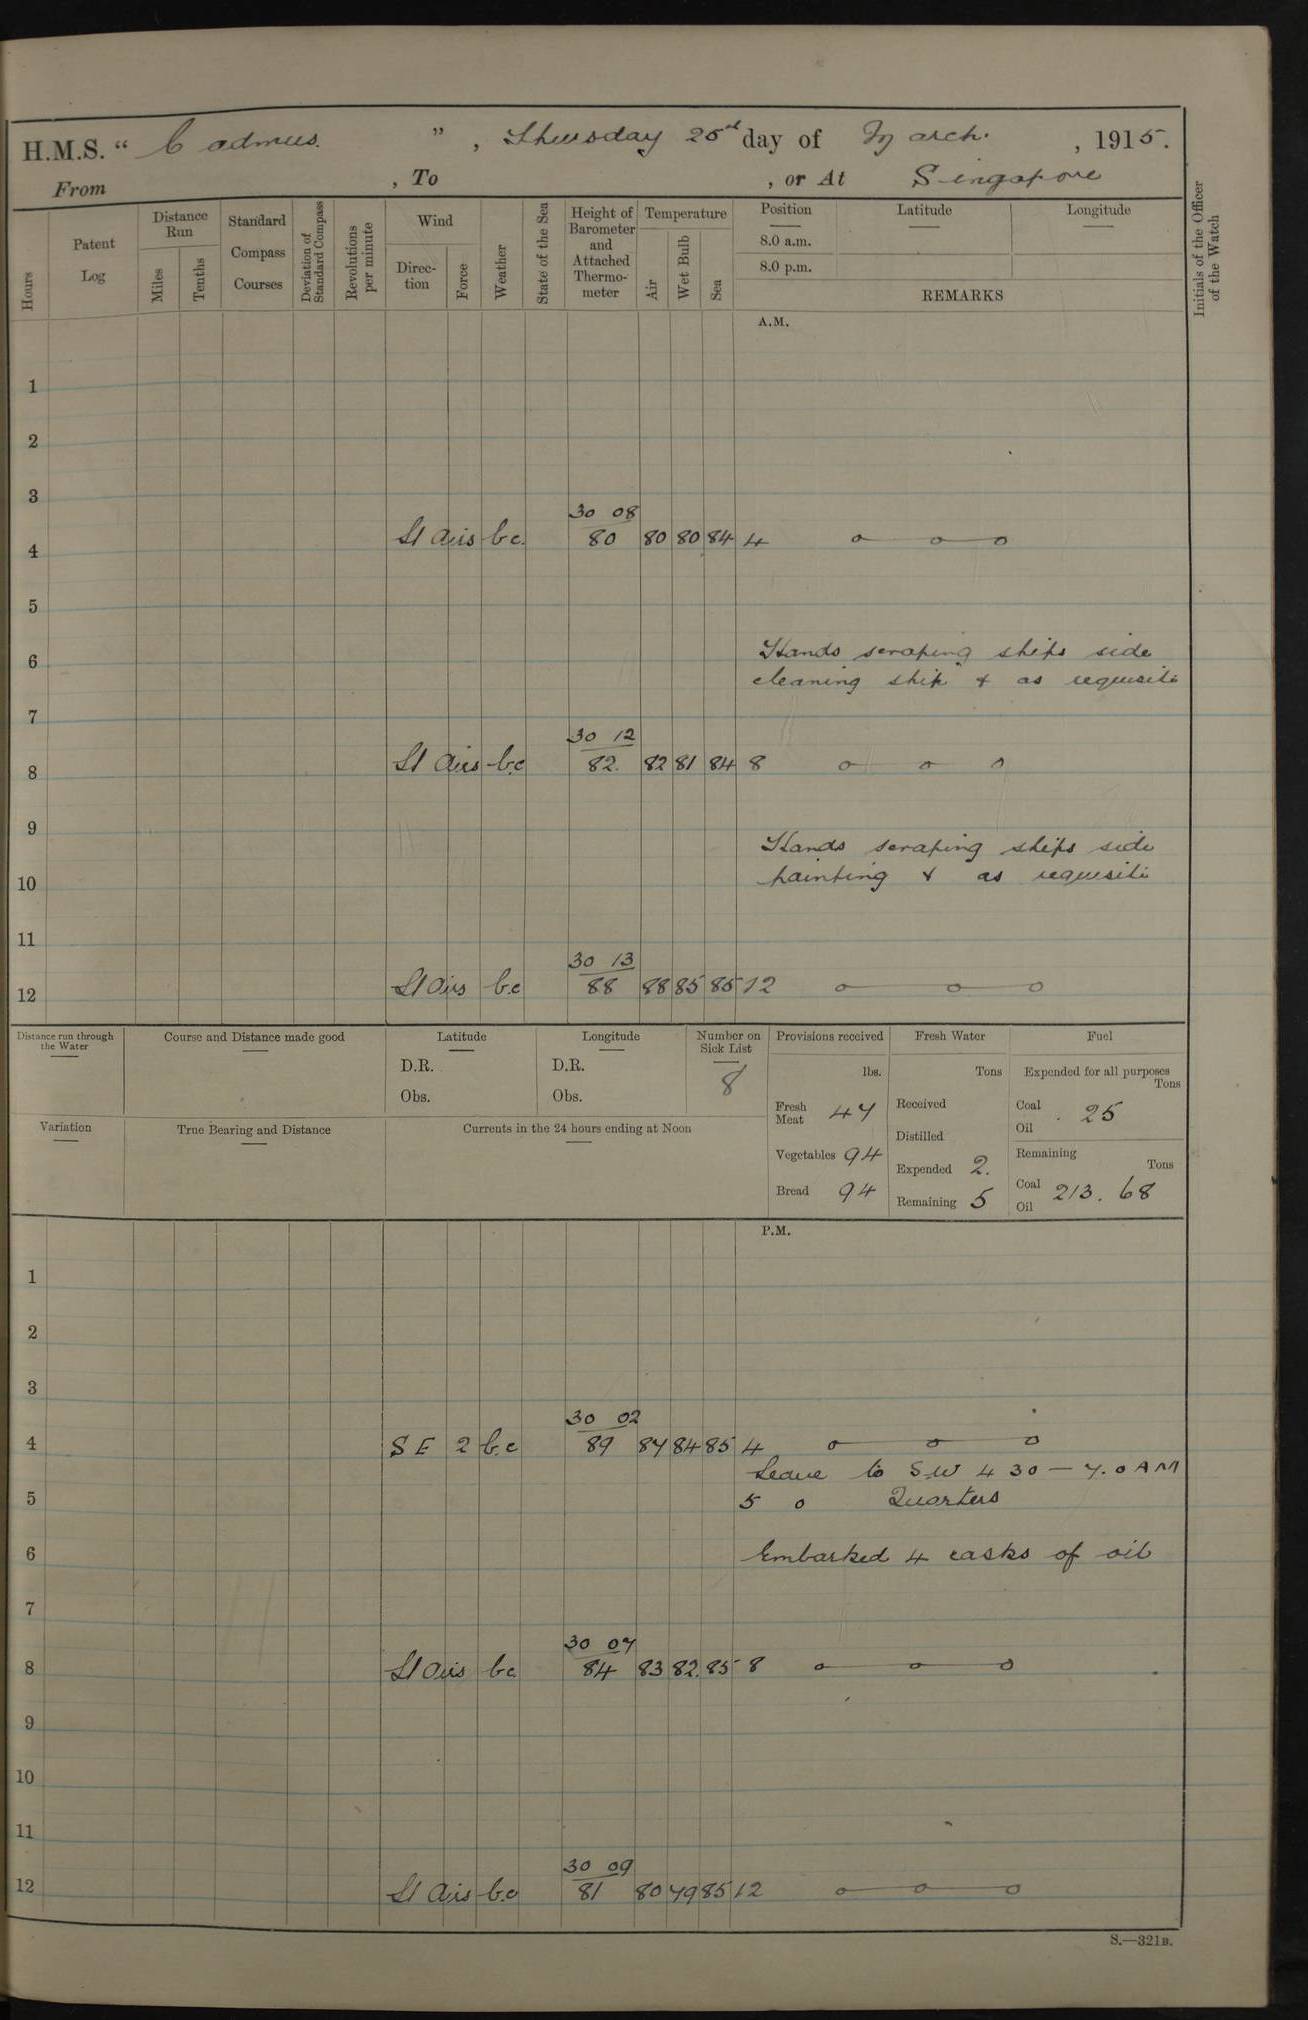 H.M.S. “ Cadmus. ”, Thursday 25th day of March. , 1915.
From , To , or At Singapore
Hours
Patent Log
Distance Run
Miles
Tenths
Standard Compass Courses
Deviation of Standard Compass
Revolutions per minute
Wind
Direction
Force
Weather
State of the Sea
Height of Barometer and Attached Thermometer
Temperature
Air
Wet Bulb
Sea
Position
Latitude
Longitude
8.0 a.m.
8.0 p.m.
REMARKS
Initials of the Officer of the Watch
A.M.
1
2
3
30 08
4 Lt Airs b.c. 80 80 80 84 4
5
Hands scraping ships side
6
cleaning ship & as requisite
7
30 12
8 Lt Airs b.c 82. 82 81 84 8
9
Hands scraping ships side
10 painting & as requisite
11
30 13
12 Lt Airs b.c 88 88 85 85 12
Distance run through the Water
Course and Distance made good
Latitude
D.R.
Obs.
Longitude
D.R.
Obs.
Number on Sick List
8
Provisions received
lbs.
Fresh Meat 47
Vegetables 94
Bread 94
Fresh Water
Tons
Received
Distilled
Expended 2.
Remaining 5
Fuel
Expended for all purposes
Tons
Coal
Oil . 25
Remaining
Tons
Coal 213. 68
Oil
Variation
True Bearing and Distance
Currents in the 24 hours ending at Noon
P.M.
1
2
3
30 02
4 S E 2 b.c 89 87 84 85 4
Leave to S.W 4 30 — 7.0 AM
5 5 0 Quarters
6 Embarked 4 casks of oil
7
30 07
8 Lt Airs bc 84 83 82. 85 8
9
10
11
30 09
12 Lt Airs b.c 81 80 79 85 12
S.—321B.